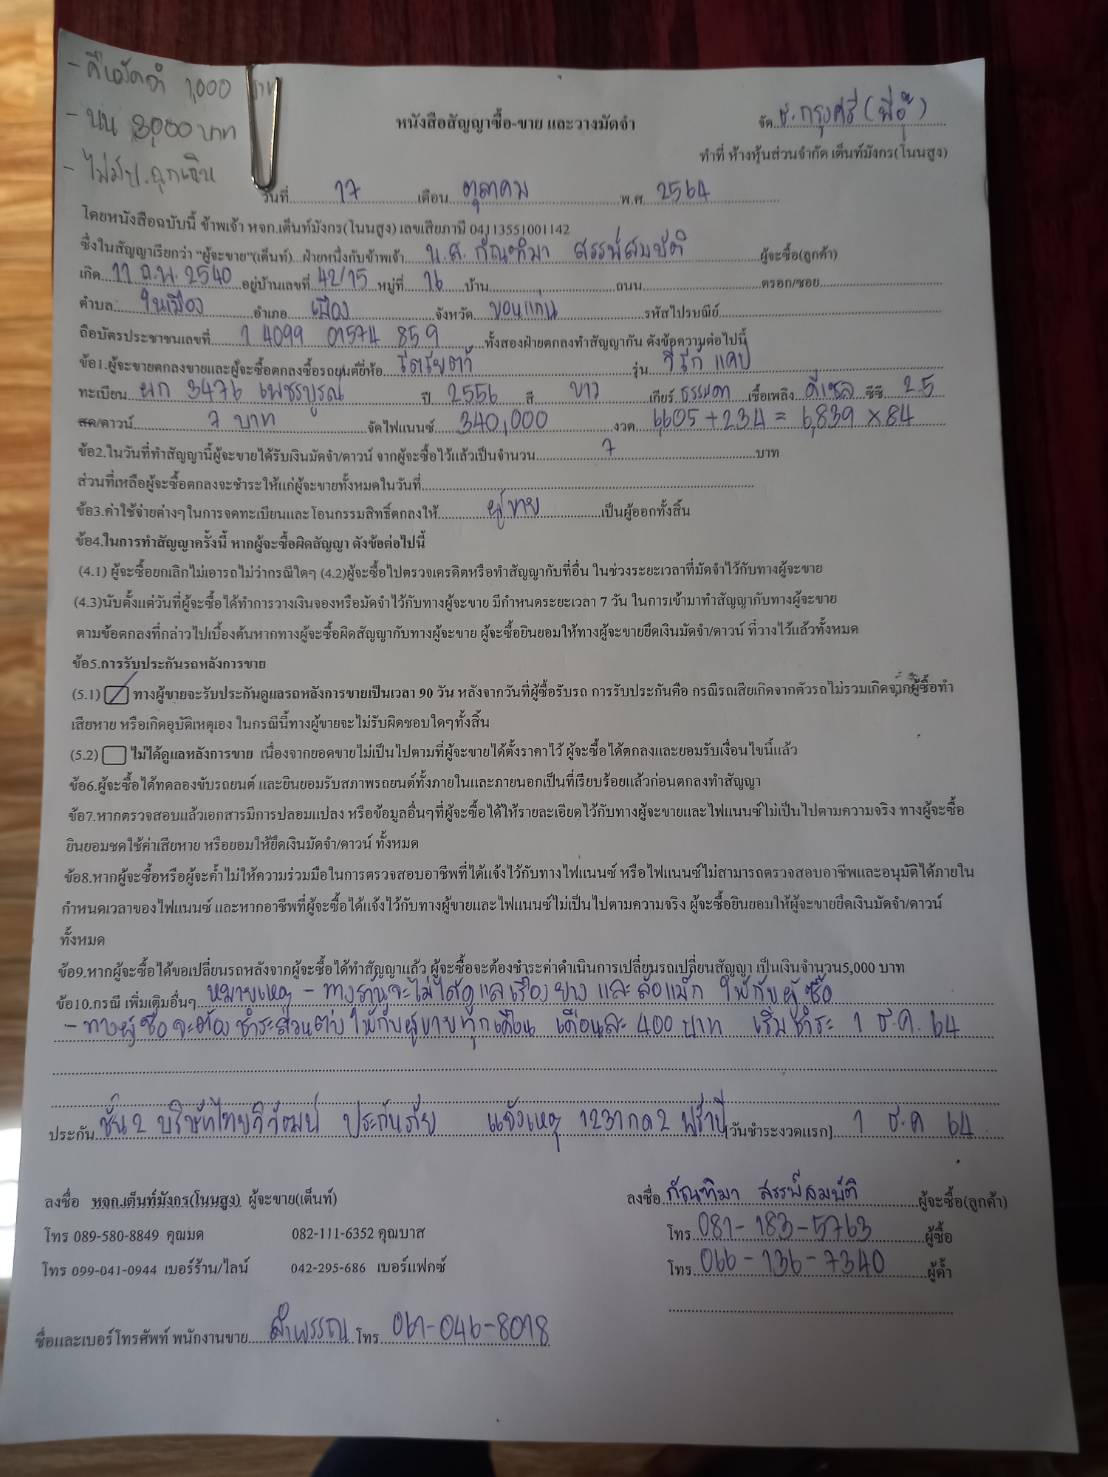 - คืนมัดจำ 1,000 บาท
- นน 3,000 บาท
- ไม่มีบ.ฉุกเฉิน
หนังสือสัญญาซื้อ-ขาย และวางมัดจำ
จัด ธ.กรุงศรี (พี่อุ๊)
ทำที่ ห้างหุ้นส่วนจำกัด เต็นท์มังกร(โนนสูง)
วันที่ 17 เดือน ตุลาคม พ.ศ. 2564
โดยหนังสือฉบับนี้ ข้าพเจ้า หจก.เต็นท์มังกร(โนนสูง) เลขเสียภาษี 0413551001142
ซึ่งในสัญญาเรียกว่า "ผู้จะขาย"(เต็นท์) ฝ่ายหนึ่งกับข้าพเจ้า น.ส. กัณฑิมา สรรพ์สมบัติ ผู้จะซื้อ(ลูกค้า)
เกิด 11 ก.พ. 2540 อยู่บ้านเลขที่ 42/15 หมู่ที่ 16 บ้าน ถนน ตรอก/ซอย
ตำบล ในเมือง อำเภอ เมือง จังหวัด ขอนแก่น รหัสไปรษณีย์
ถือบัตรประชาชนเลขที่ 1 4099 01574 859 ทั้งสองฝ่ายตกลงทำสัญญากัน ดังข้อความต่อไปนี้
ข้อ1.ผู้จะขายตกลงขายและผู้จะซื้อตกลงซื้อรถยนต์ยี่ห้อ โตโยต้า รุ่น วีโก้ แคป
ทะเบียน ผก 3476 เพชรบูรณ์ ปี 2556 สี ขาว เกียร์ ธรรมดา เชื้อเพลิง ดีเซล ซีซี 2.5
สด/ดาวน์ 7 บาท จัดไฟแนนซ์ 340,000 งวด 6,605+234 = 6,839 x 84
ข้อ2.ในวันที่ทำสัญญานี้ผู้จะขายได้รับเงินมัดจำ/ดาวน์ จากผู้จะซื้อไว้แล้วเป็นจำนวน 7 บาท
ส่วนที่เหลือผู้จะซื้อตกลงจะชำระให้แก่ผู้จะขายทั้งหมดในวันที่
ข้อ3.ค่าใช้จ่ายต่างๆในการจดทะเบียนและโอนกรรมสิทธิ์ตกลงให้ ผู้ขาย เป็นผู้ออกทั้งสิ้น
ข้อ4.ในการทำสัญญาครั้งนี้ หากผู้จะซื้อผิดสัญญา ดังข้อต่อไปนี้
(4.1) ผู้จะซื้อยกเลิกไม่เอารถไม่ว่ากรณีใดๆ (4.2)ผู้จะซื้อไปตรวจเครดิตหรือทำสัญญากับที่อื่น ในช่วงระยะเวลาที่มัดจำไว้กับทางผู้จะขาย
(4.3)นับตั้งแต่วันที่ผู้จะซื้อได้ทำการวางเงินจองหรือมัดจำไว้กับทางผู้จะขาย มีกำหนดระยะเวลา 7 วัน ในการเข้ามาทำสัญญากับทางผู้จะขาย
ตามข้อตกลงที่กล่าวไปเบื้องต้นหากทางผู้จะซื้อผิดสัญญากับทางผู้จะขาย ผู้จะซื้อยินยอมให้ทางผู้จะขายยึดเงินมัดจำ/ดาวน์ ที่วางไว้แล้วทั้งหมด
ข้อ5.การรับประกันรถหลังการขาย
(5.1) ทางผู้ขายจะรับประกันดูแลรถหลังการขายเป็นเวลา 90 วัน หลังจากวันที่ผู้ซื้อรับรถ การรับประกันคือ กรณีรถเสียเกิดจากตัวรถไม่รวมเกิดจากผู้ซื้อทำ
เสียหาย หรือเกิดอุบัติเหตุเอง ในกรณีนี้ทางผู้ขายจะไม่รับผิดชอบใดๆทั้งสิ้น
(5.2) ไม่ได้ดูแลหลังการขาย เนื่องจากยอดขายไม่เป็นไปตามที่ผู้จะขายได้ตั้งราคาไว้ ผู้จะซื้อได้ตกลงและยอมรับเงื่อนไขนี้แล้ว
ข้อ6.ผู้จะซื้อได้ทดลองขับรถยนต์ และยินยอมรับสภาพรถยนต์ทั้งภายในและภายนอกเป็นที่เรียบร้อยแล้วก่อนตกลงทำสัญญา
ข้อ7.หากตรวจสอบแล้วเอกสารมีการปลอมแปลง หรือข้อมูลอื่นๆที่ผู้จะซื้อได้ให้รายละเอียดไว้กับทางผู้จะขายและไฟแนนซ์ไม่เป็นไปตามความจริง ทางผู้จะซื้อ
ยินยอมชดใช้ค่าเสียหาย หรือยอมให้ยึดเงินมัดจำ/ดาวน์ ทั้งหมด
ข้อ8.หากผู้จะซื้อหรือผู้จะค้ำไม่ให้ความร่วมมือในการตรวจสอบอาชีพที่ได้แจ้งไว้กับทางไฟแนนซ์ หรือไฟแนนซ์ไม่สามารถตรวจสอบอาชีพและอนุมัติได้ภายใน
กำหนดเวลาของไฟแนนซ์ และหากอาชีพที่ผู้จะซื้อได้แจ้งไว้กับทางผู้ขายและไฟแนนซ์ไม่เป็นไปตามความจริง ผู้จะซื้อยินยอมให้ผู้จะขายยึดเงินมัดจำ/ดาวน์
ทั้งหมด
ข้อ9.หากผู้จะซื้อได้ขอเปลี่ยนรถหลังจากผู้จะซื้อได้ทำสัญญาแล้ว ผู้จะซื้อจะต้องชำระค่าดำเนินการเปลี่ยนรถเปลี่ยนสัญญา เป็นเงินจำนวน5,000 บาท
ข้อ10.กรณี เพิ่มเติมอื่นๆ หมายเหตุ - ทางร้านจะไม่ได้ดูแลเรื่อง ยาง และ ล้อแม็ก ให้กับผู้ซื้อ
- ทางผู้ซื้อจะต้องชำระส่วนต่างให้กับผู้ขายทุกเดือน เดือนละ 400 บาท เริ่มชำระ 1 ธ.ค. 64
ประกัน ชั้น2 บริษัทไทยวิวัฒน์ ประกันภัย แจ้งเหตุ 1231 กด 2 ฟรีปี (วันชำระงวดแรก) 1 ธ.ค 64
ลงชื่อ หจก.เต็นท์มังกร(โนนสูง) ผู้จะขาย(เต็นท์) ลงชื่อ กัณฑิมา สรรพ์สมบัติ ผู้จะซื้อ(ลูกค้า)
โทร 089-580-8849 คุณมด 082-111-6352 คุณบาส โทร 081-183-5763 ผู้ซื้อ
โทร 099-041-0944 เบอร์ร้าน/ไลน์ 042-295-686 เบอร์แฟกซ์ โทร 066-136-7340 ผู้ค้ำ
ชื่อและเบอร์โทรศัพท์ พนักงานขาย ลำพรรณ โทร 061-046-8018